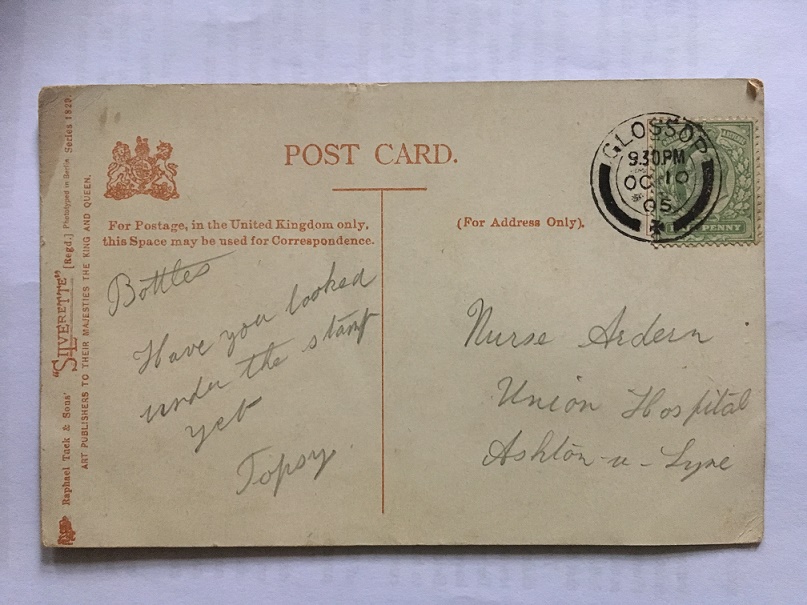 POST CARD.
For Postage, in the United Kingdom only,
this Space may be used for Correspondence.
(For Address Only).
GLOSSOP
9.30PM
OC 10
05
PENNY
Bottles
Have you looked
under the stamp
yet
Topsy
Nurse Ardern
Union Hospital
Ashton-u-Lyne
Raphael Tuck & Sons' "SILVERETTE" [Regd.] Phototyped in Berlin. Series 1829.
ART PUBLISHERS TO THEIR MAJESTIES THE KING AND QUEEN.